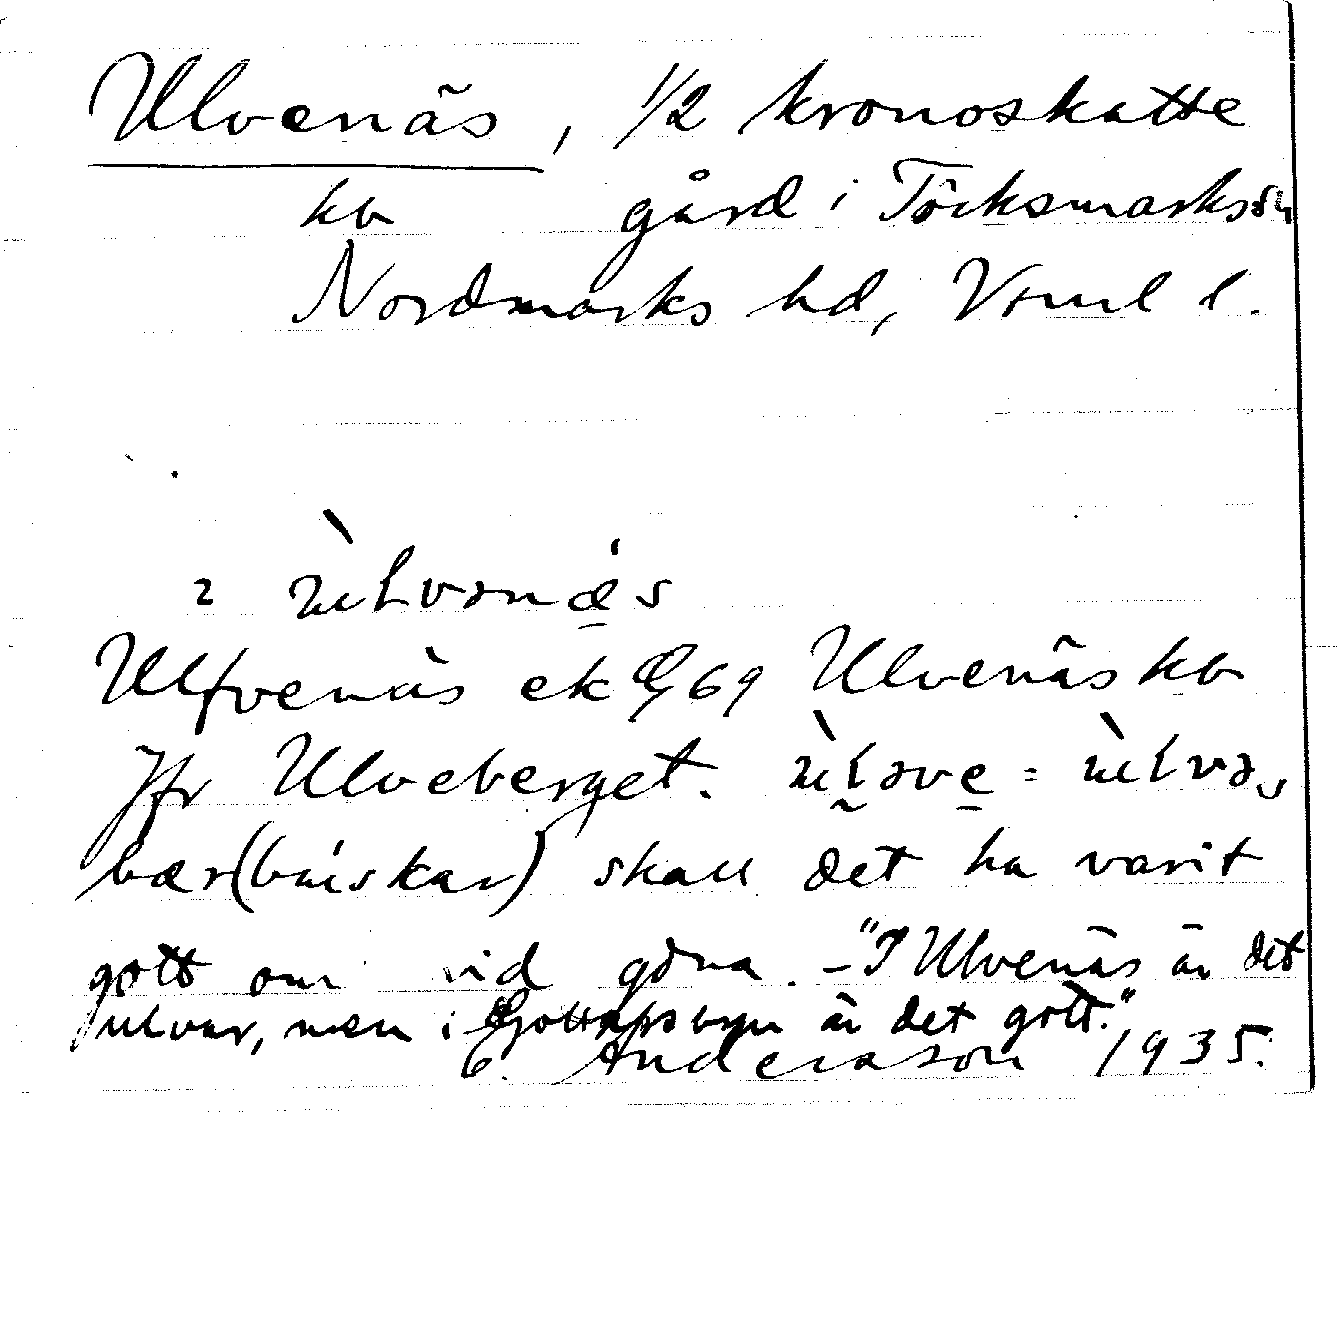 Ulvenäs, 1/2 kronoskatte
kb gård i Töcksmarks sn
Nordmarks hd, Vrml l.
2 ùlvənǽs
Ulfvenäs ek G 69 Ulvenäs kb
Jfr Ulveberget. ùləve = ùlvə
bær (buskar) skall det ha varit
gott om vid gdna. – "I Ulvenäs är det
ulvar, men i byn är det gott."
G. Andersson 1935.